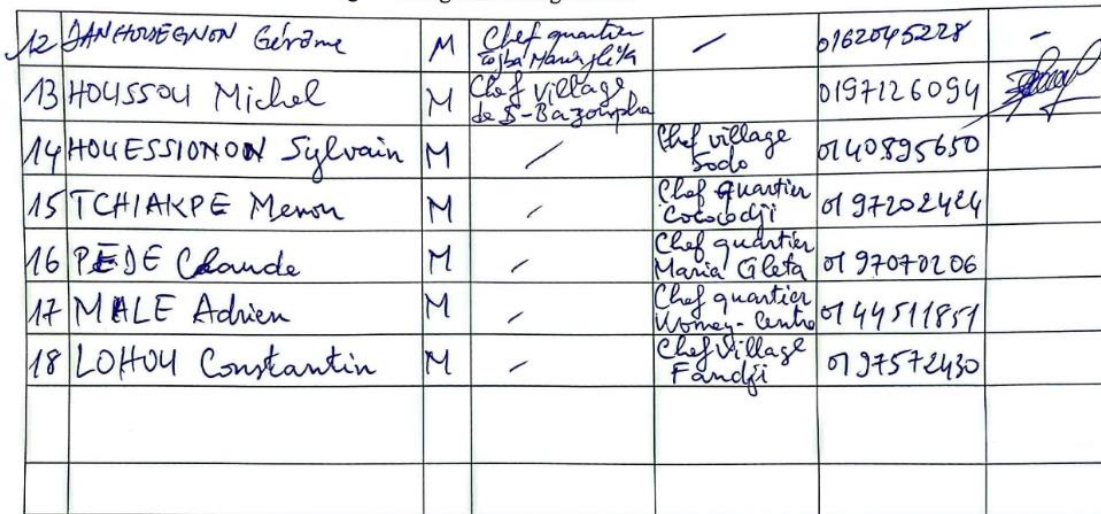 12 DANHOUEGNON Gérôme M Chef quartier Togba Maria Gléta / 0162045228 -
13 HOUSSOU Michel M Chef village de S-Bazounpka 0197126094
14 HOUESSIONON Sylvain M / Chef village Sodo 0140895650
15 TCHIAKPE Menon M / Chef quartier Cococodji 0197202424
16 PEDE Claude M / Chef quartier Maria Gleta 0197070206
17 MALE Adrien M / Chef quartier Womey-Centre 0144511851
18 LOHOU Constantin M / Chef village Fandji 0197572430